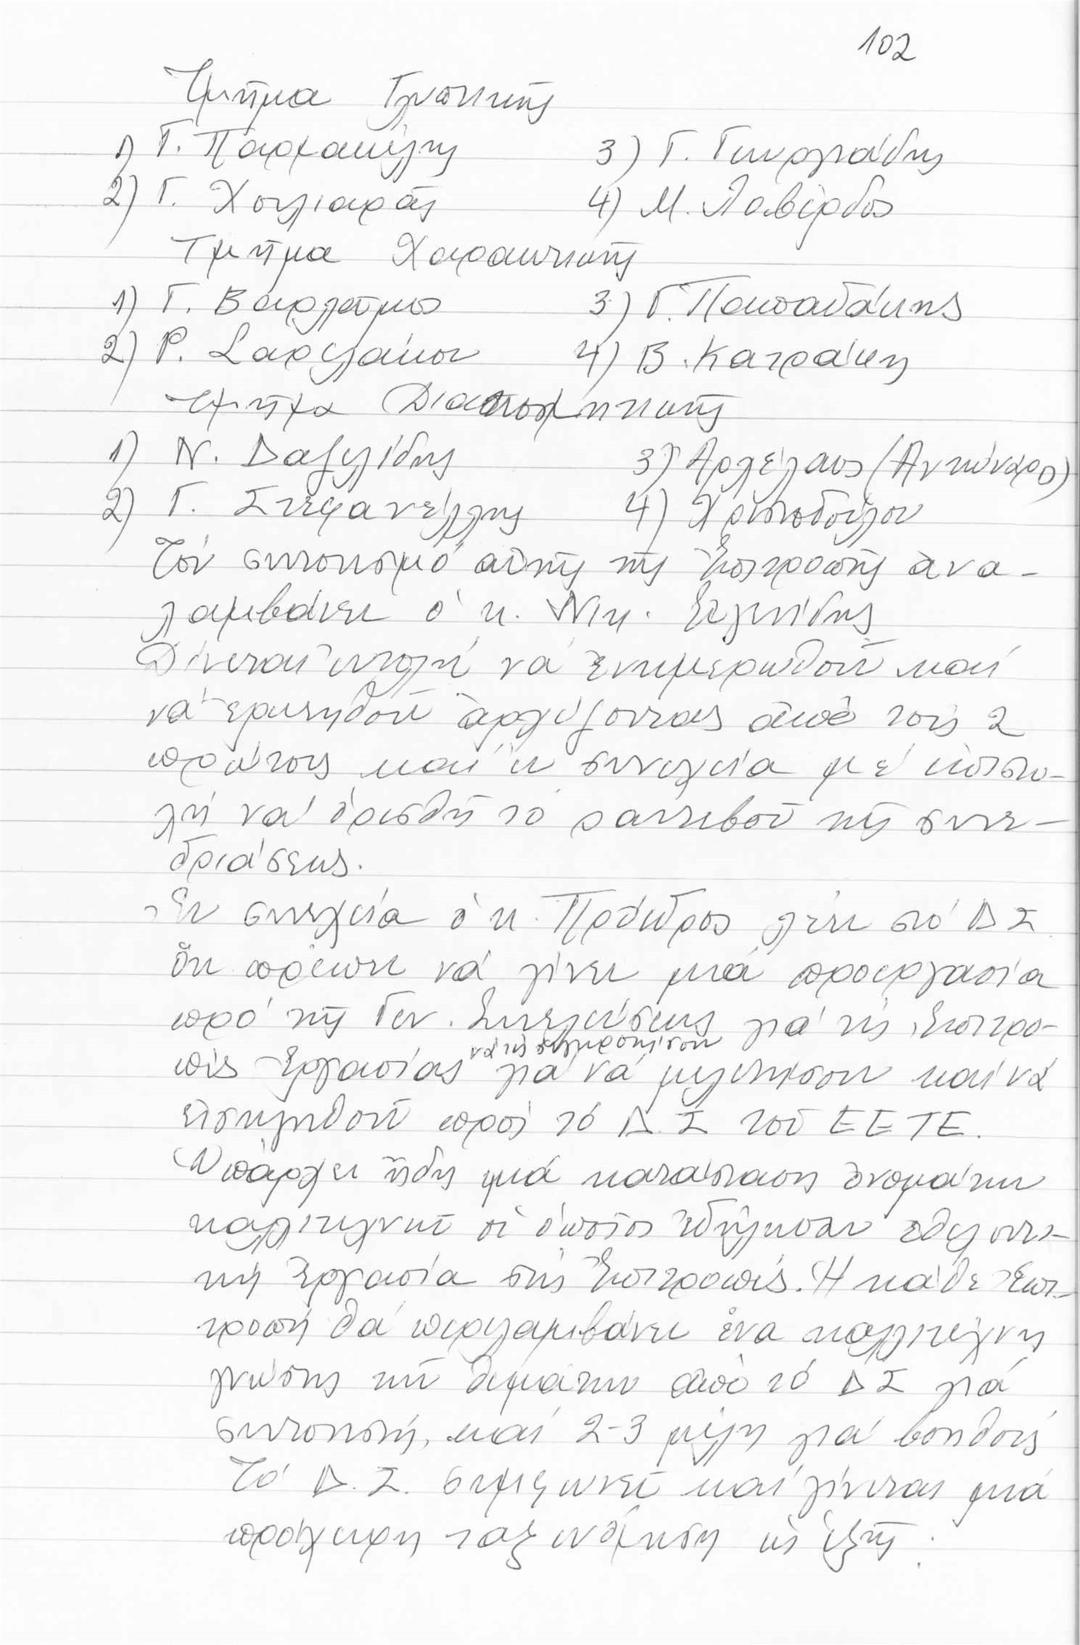 102
Τμῆμα Γλυπτικῆς
1) Γ. Παρμακέλης 3) Γ. Γεωργιάδης
2) Γ. Χουλιαρᾶς 4) Μ. Λαβέρδος
Τμῆμα Χαρακτικῆς
1) Γ. Βαρλάμος 3) Γ. Παπαδάκης
2) Ρ. 4) Β. Κατράκη
Τμῆμα Διακοσμητικῆς
1) Ν. 3) Ἀρχέλαος (Ἀντώναρος)
2) Γ. Στεφανέλλης 4) Χριστοδούλου
Τόν συντονισμό αὐτῆς τῆς Ἐπιτροπῆς ἀνα-
λαμβάνει ὁ κ. Νικ.
Δίνεται ἐντολή νά ἐνημερωθοῦν καί
νά ἐρωτηθοῦν ἀρχίζοντας ἀπό τούς 2
πρώτους καί ἐν συνεχεία μέ ἐπιστο-
λή νά ὁρισθῆ τό ραντεβοῦ τῆς συνε-
δριάσεως.
Ἐν συνεχεία ὁ κ. Πρόεδρος λέει στό Δ Σ
ὅτι πρέπει νά γίνει μιά προεργασία
πρό τῆς Γεν. Συνελεύσεως γιά τίς Ἐπιτρο-
πές Ἐργασίας νά τίς συγκροτήσουν γιά νά μελετήσουν καί νά
εἰσηγηθοῦν πρός τό Δ. Σ τοῦ ΕΕΤΕ.
Ὑπάρχει ἤδη μιά κατάσταση ὀνομάτων
καλλιτεχνῶν οἱ ὁποῖοι ἐδήλωσαν ἐθελοντι-
κή ἐργασία στίς Ἐπιτροπές. Ἡ κάθε Ἐπι-
τροπή θά περιλαμβάνει ἕνα καλλιτέχνη
γνώστης τῶν θεμάτων ἀπό τό Δ Σ γιά
συντονιστή, καί 2-3 μέλη γιά βοηθούς
Τό Δ. Σ. συμφωνεῖ καί γίνεται μιά
πρόχειρη ταξινόμηση ὡς ἑξῆς :